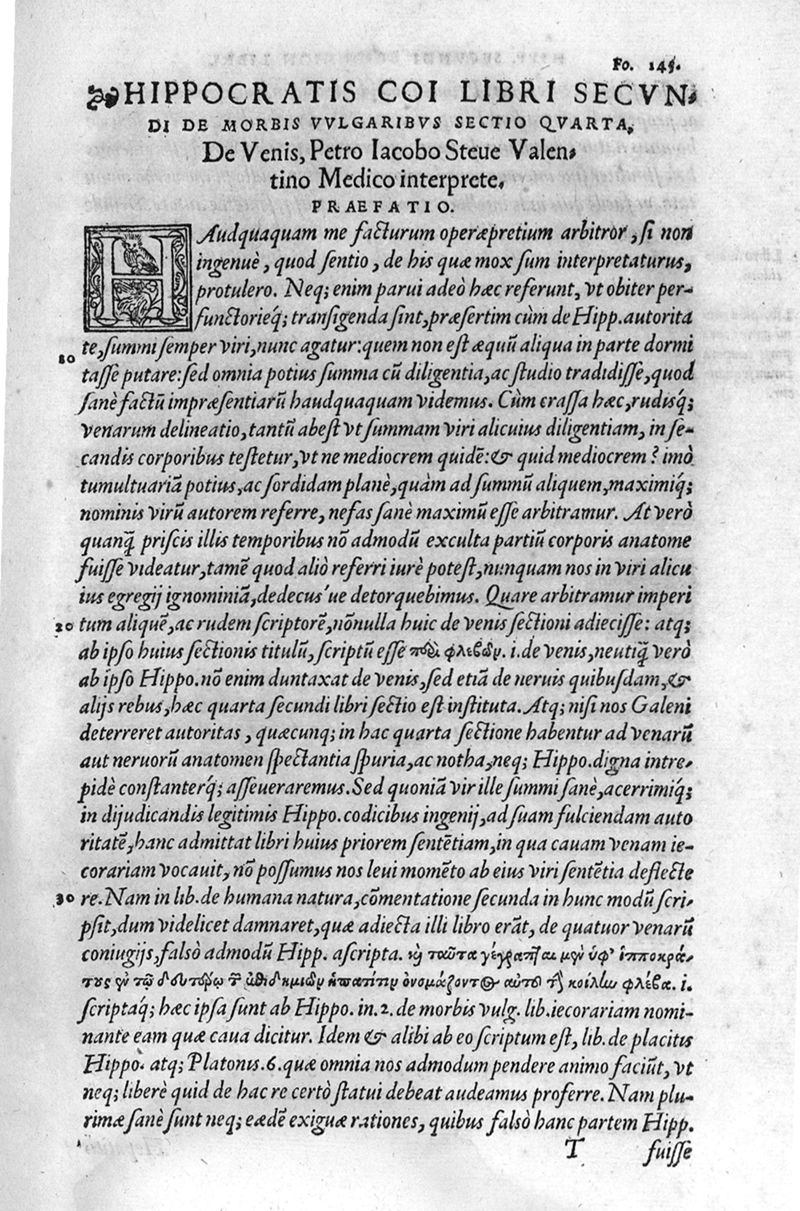 Fo. 145.
HIPPOCRATIS COI LIBRI SECVN,
DI DE MORBIS VVLGARIBVS SECTIO QVARTA,
De Venis, Petro Iacobo Steue Valen,
tino Medico interprete,
PRAEFATIO.
HAudquaquam me facturum operæpretium arbitror, si non
ingenuè, quod sentio, de his quæ mox sum interpretaturus,
protulero. Neq; enim parui adeò hæc referunt, vt obiter per-
functorieq́; transigenda sint, præsertim cùm de Hipp. autorita
10 te, summi semper viri, nunc agatur: quem non est æquũ aliqua in parte dormi
tasse putare: sed omnia potius summa cũ diligentia, ac studio tradidisse, quod
sanè factũ impræsentiarũ haudquaquam videmus. Cùm crassa hæc, rudisq́;
venarum delineatio, tantũ abest vt summam viri alicuius diligentiam, in se-
candis corporibus testetur, vt ne mediocrem quidẽ: & quid mediocrem? imò
tumultuariã potius, ac sordidam planè, quàm ad summũ aliquem, maximiq́;
nominis virũ autorem referre, nefas sanè maximũ esse arbitramur. At verò
quanq̃ priscis illis temporibus nõ admodũ exculta partiũ corporis anatome
fuisse videatur, tamẽ quod aliò referri iurè potest, nunquam nos in viri alicu
ius egregij ignominiã, dedecus'ue detorquebimus. Quare arbitramur imperi
20 tum aliquẽ, ac rudem scriptorẽ, nõnulla huic de venis sectioni adiecisse: atq;
ab ipso huius sectionis titulũ, scriptũ esse περὶ φλεβῶν. i. de venis, neutiq̃ verò
ab ipso Hippo. nõ enim duntaxat de venis, sed etiã de neruis quibusdam, &
alijs rebus, hæc quarta secundi libri sectio est instituta. Atq; nisi nos Galeni
deterreret autoritas, quæcunq; in hac quarta sectione habentur ad venarũ
aut neruorũ anatomen spectantia spuria, ac notha, neq; Hippo. digna intre,
pidè constanterq́; asseueraremus. Sed quoniã vir ille summi sanè, acerrimiq́;
in dijudicandis legitimis Hippo. codicibus ingenij, ad suam fulciendam auto
ritatẽ, hanc admittat libri huius priorem sentẽtiam, in qua cauam venam ie-
corariam vocauit, nõ possumus nos leui momẽto ab eius viri sentẽtia deflecte
30 re. Nam in lib. de humana natura, cõmentatione secunda in hunc modũ scri,
psit, dum videlicet damnaret, quæ adiecta illi libro erãt, de quatuor venarũ
coniugijs, falsò admodũ Hipp. ascripta. καὶ ταῦτα γέγραπται μὲν ὑφ' ἱπποκρά,
τους ἐν τῷ δευτέρῳ τῶν ἐπιδημιῶν ἡπατίτην ὀνομάζοντος αὐτοῦ τὴν κοίλην φλέβα. i.
scriptaq́; hæc ipsa sunt ab Hippo. in. 2. de morbis vulg. lib. iecorariam nomi-
nante eam quæ caua dicitur. Idem & alibi ab eo scriptum est, lib. de placitis
Hippo. atq; Platonis. 6. quæ omnia nos admodum pendere animo faciũt, vt
neq; liberè quid de hac re certò statui debeat audeamus proferre. Nam plu-
rimæ sanè sunt neq; eædẽ exiguæ rationes, quibus falsò hanc partem Hipp.
T fuisse